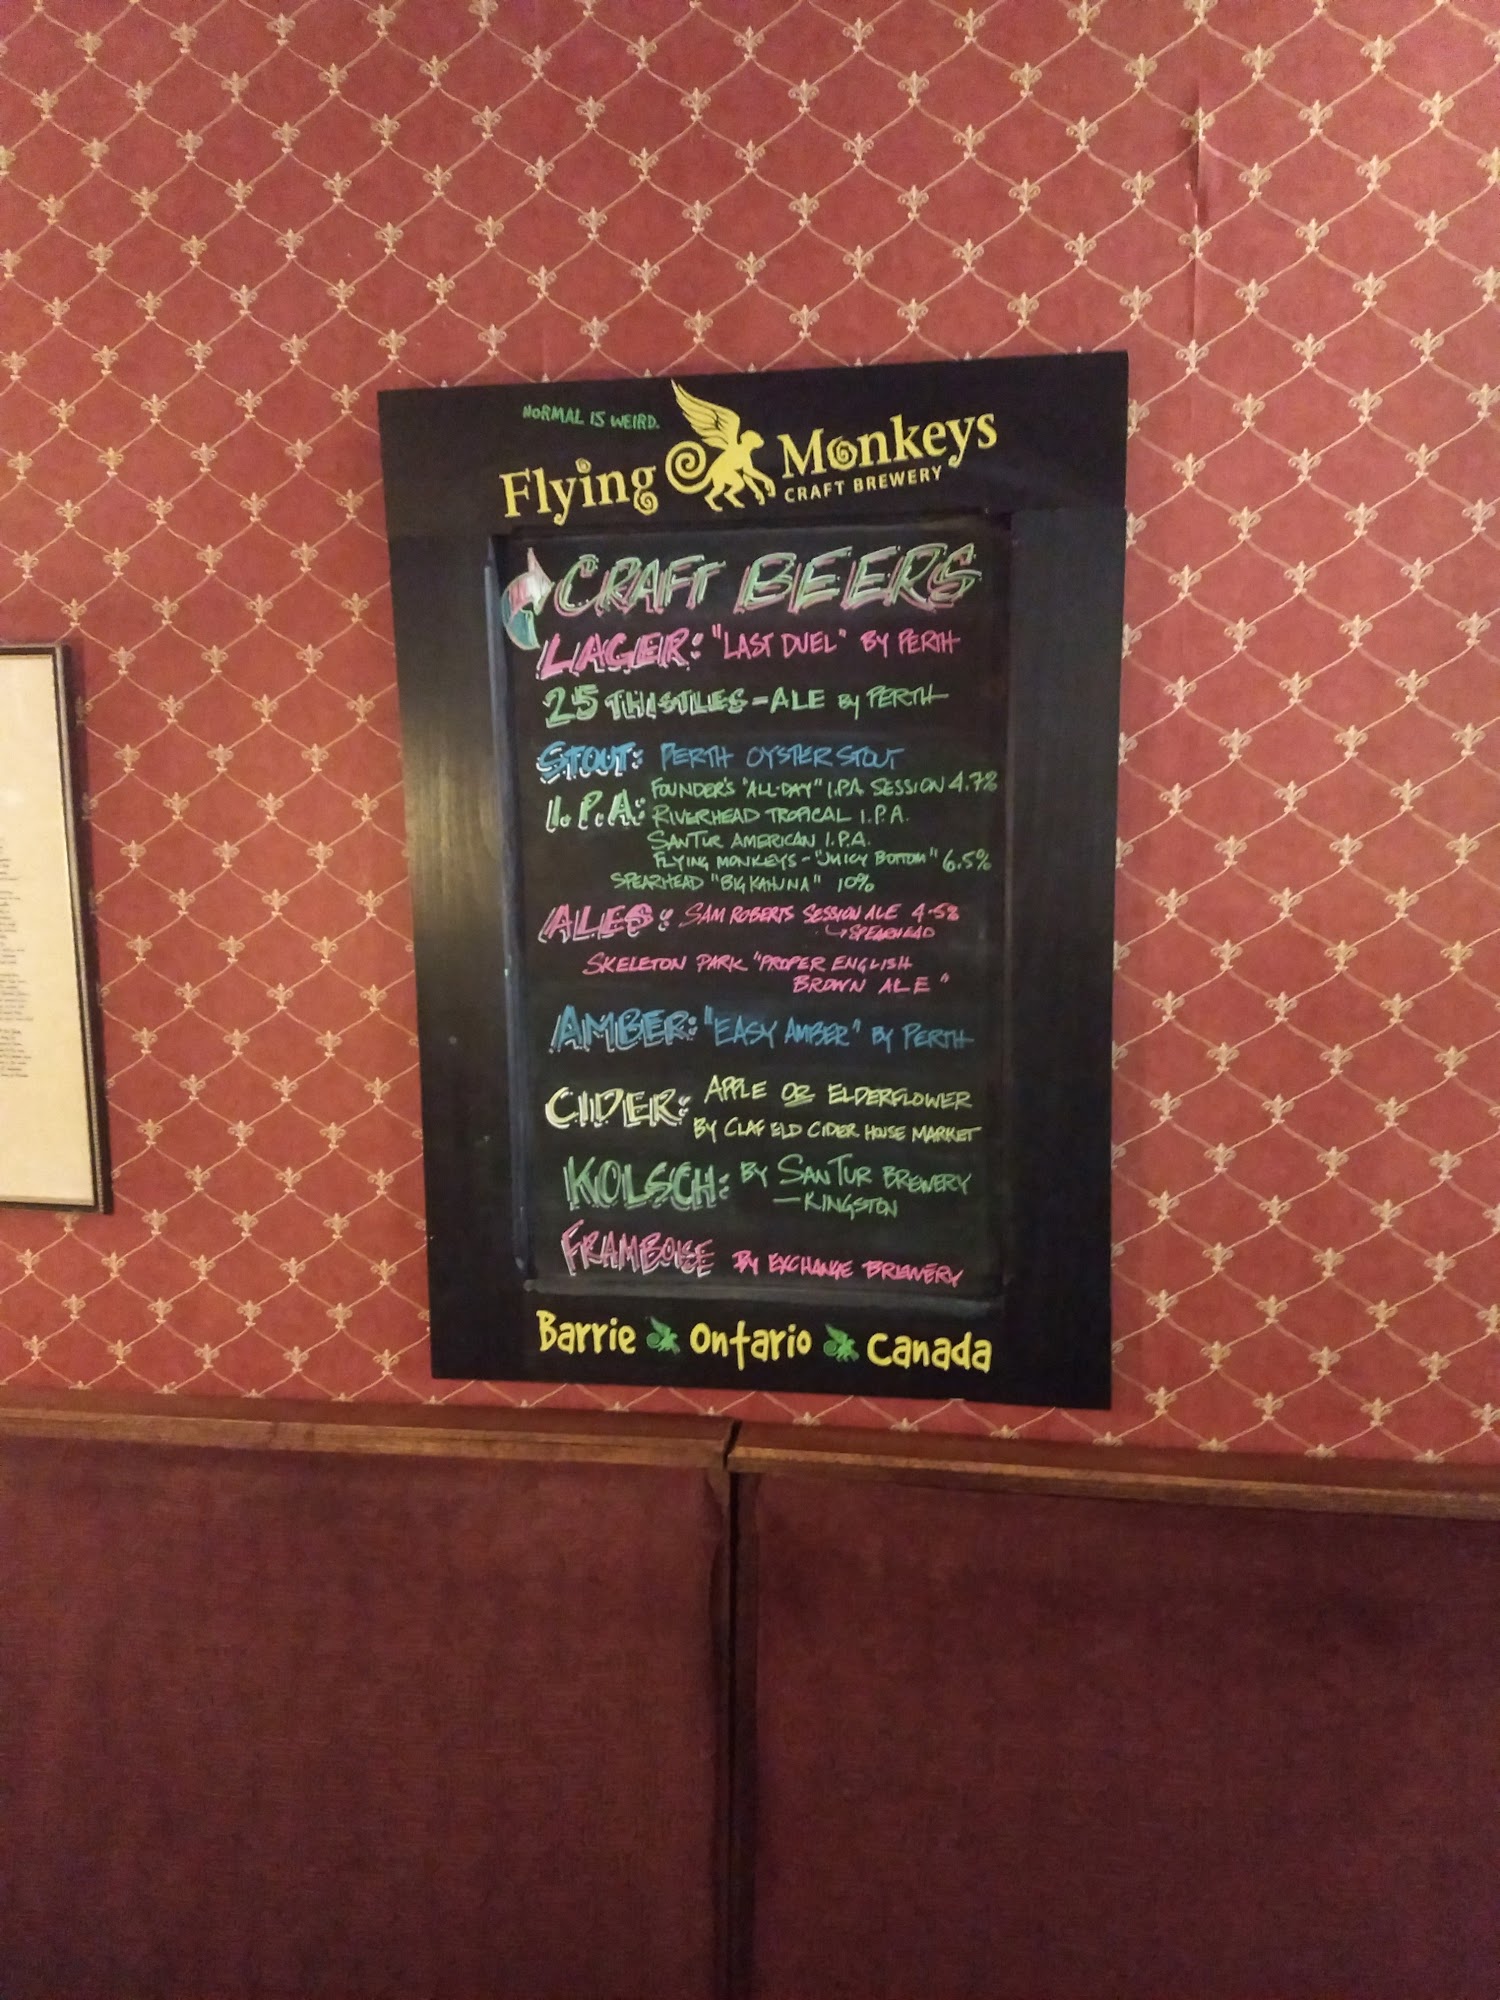 NORMAL IS WEIRD.
Flying Monkeys
CRAFT BREWERY
CRAFT BEERS
LAGER: "LAST DUEL" BY PERTH
25 THISTLES - ALE by PERTH
STOUT: PERTH OYSTER STOUT
I.P.A: FOUNDER'S "ALL-DAY" I.P.A. SESSION 4.7%
RIVERHEAD TROPICAL I.P.A.
SANTUR AMERICAN I.P.A.
FLYING MONKEYS - "JUICY BOTTOM" 6.5%
SPEARHEAD "BIG KAHUNA" 10%
ALES: SAM ROBERTS SESSION ALE 4.5%
SPEARHEAD
SKELETON PARK "PROPER ENGLISH
BROWN ALE"
AMBER: "EASY AMBER" by PERTH
CIDER: APPLE OR ELDERFLOWER
BY CLAF ELD CIDER HOUSE MARKET
KOLSCH: BY SANTUR BREWERY
- KINGSTON
FRAMBOISE BY EXCHANGE BREWERY
Barrie Ontario Canada